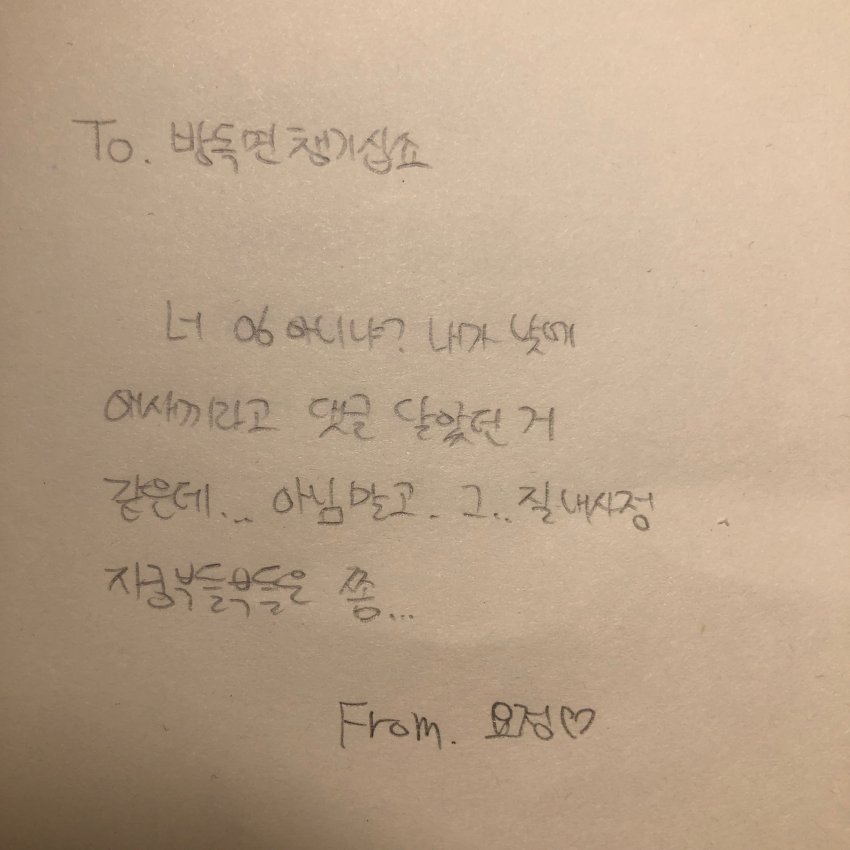 To. 방독면 챙기십쇼
너 06 아니냐? 내가 낮에
여사끼라고 댓글 달았던 거
같은데... 아님말고. 그.. 질내사정
자궁부들부들은 쫌...
From. 요정♡